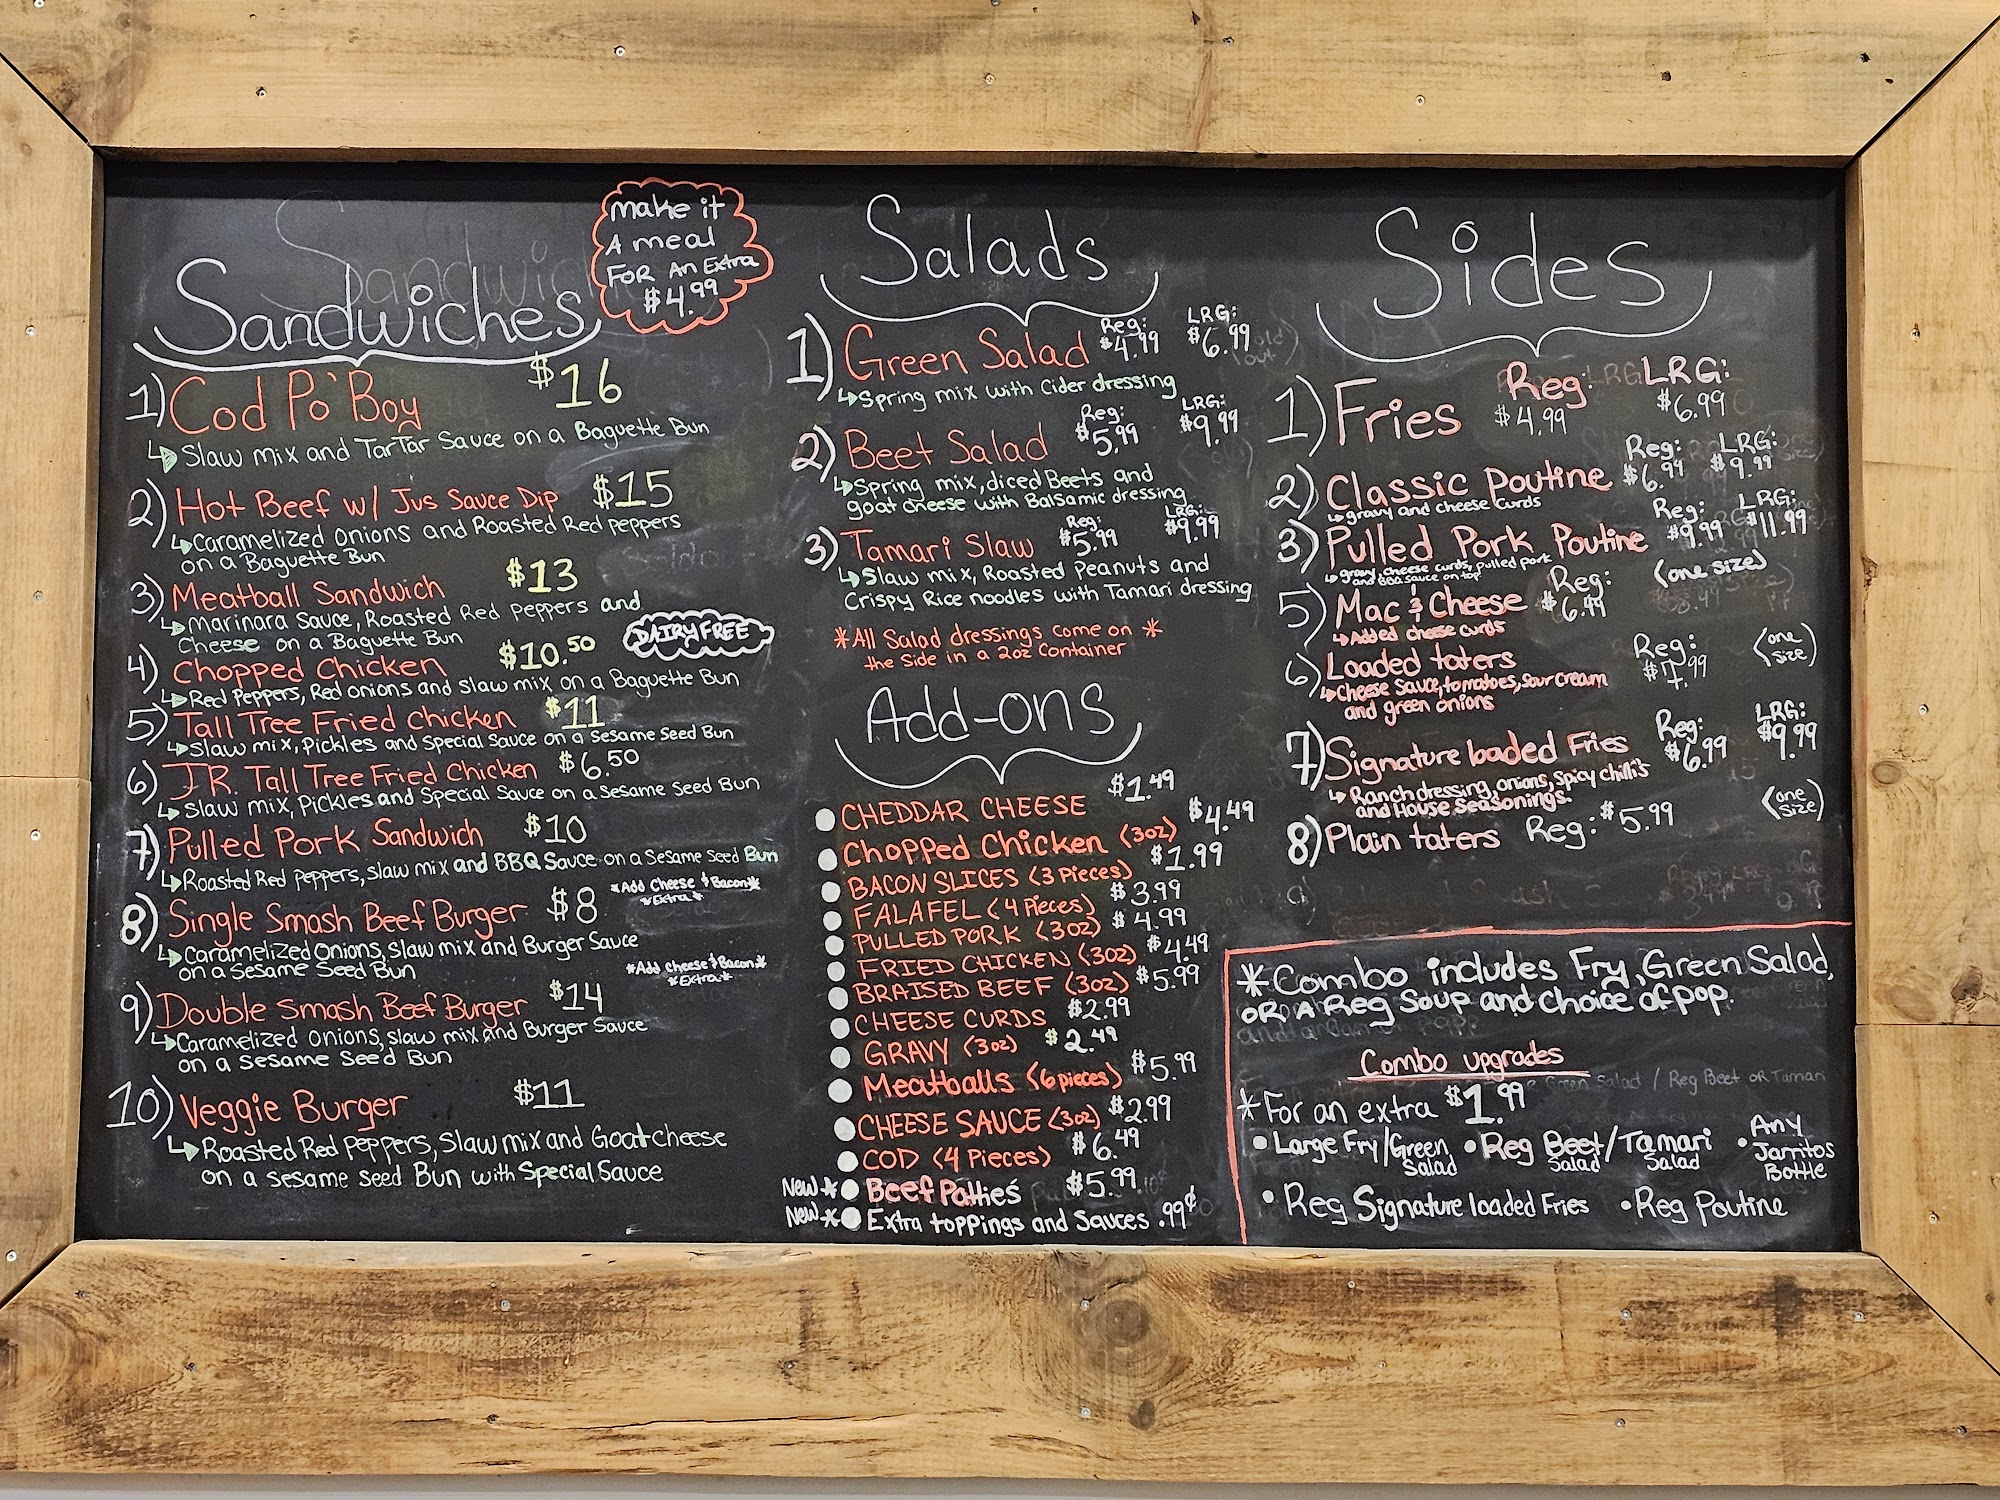 Sandwiches
make it
A meal
FOR An Extra
$4.99
1) Cod Po'Boy $16
Slaw mix and TarTar Sauce on a Baguette Bun
2) Hot Beef w/ Jus Sauce Dip $15
Caramelized onions and Roasted Red peppers
on a Baguette Bun
3) Meatball Sandwich $13
Marinara Sauce, Roasted Red Peppers and
Cheese on a Baguette Bun
4) Chopped Chicken $10.50 DAIRY FREE
Red Peppers, Red onions and slaw mix on a Baguette Bun
5) Tall Tree Fried chicken $11
Slaw mix, Pickles and Special Sauce on a Sesame Seed Bun
6) J.R. Tall Tree Fried Chicken $6.50
Slaw mix, Pickles and Special Sauce on a Sesame Seed Bun
7) Pulled Pork Sandwich $10
Roasted Red peppers, slaw mix and BBQ Sauce on a Sesame Seed Bun
8) Single Smash Beef Burger $8 *Add Cheese & Bacon*
*Extra*
Caramelized Onions, Slaw mix and Burger Sauce
on a Sesame Seed Bun
9) Double Smash Beef Burger $14 *Add Cheese & Bacon*
*Extra*
Caramelized onions, slaw mix and Burger Sauce
on a Sesame Seed Bun
10) Veggie Burger $11
Roasted Red peppers, Slaw mix and Goat cheese
on a sesame seed Bun with Special Sauce
Salads
1) Green Salad Reg: $4.99 LRG: $6.99
Spring mix with Cider dressing
2) Beet Salad Reg: $5.99 LRG: $9.99
Spring mix, diced Beets and
goat cheese with Balsamic dressing
3) Tamari Slaw Reg: $5.99 LRG: $9.99
Slaw mix, Roasted Peanuts and
Crispy Rice noodles with Tamari dressing
*All Salad dressings come on *
the side in a 2oz container
Add-ons
CHEDDAR CHEESE $1.49
Chopped Chicken (3oz) $4.49
BACON SLICES (3 Pieces) $1.99
FALAFEL (4 Pieces) $3.99
PULLED PORK (3oz) $4.99
FRIED CHICKEN (3oz) $4.49
BRAISED BEEF (3oz) $5.99
CHEESE CURDS $2.99
GRAVY (3oz) $2.49
Meatballs (6 pieces) $5.99
CHEESE SAUCE (3oz) $2.99
COD (4 Pieces) $6.49
New* Beef Patties $5.99
New* Extra toppings and Sauces .99¢
Sides
1) Fries Reg: $4.99 LRG: $6.99
2) Classic Poutine Reg: $6.99 LRG: $9.99
gravy and cheese curds
3) Pulled Pork Poutine Reg: $9.99 LRG: $11.99
gravy, cheese curds, pulled pork
and BBQ sauce on top
5) Mac & Cheese Reg: $6.49 (one size)
Added cheese curds
6) Loaded taters Reg: $7.99 (one size)
Cheese sauce, tomatoes, sour cream
and green onions
7) Signature loaded Fries Reg: $6.99 LRG: $9.99
Ranch dressing, onions, spicy chilli's
and House Seasonings.
8) Plain taters Reg: $5.99 (one size)
*Combo includes Fry, Green Salad,
OR A Reg Soup and choice of pop.
Combo upgrades
*For an extra $1.99
• Large Fry/Green Salad • Reg Beet Salad/Tamari Salad • Any Jarritos Bottle
• Reg Signature loaded Fries • Reg Poutine